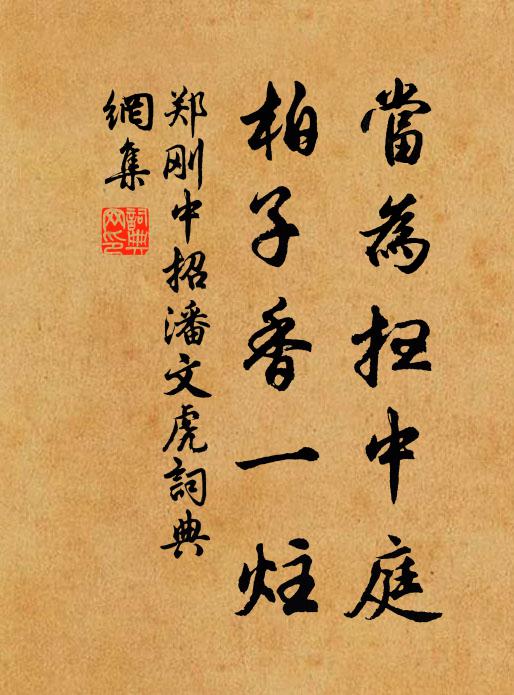 當為扫中庭
柏子香一炷
郑刚中招潘文虎詞典
網集
詞典
网印